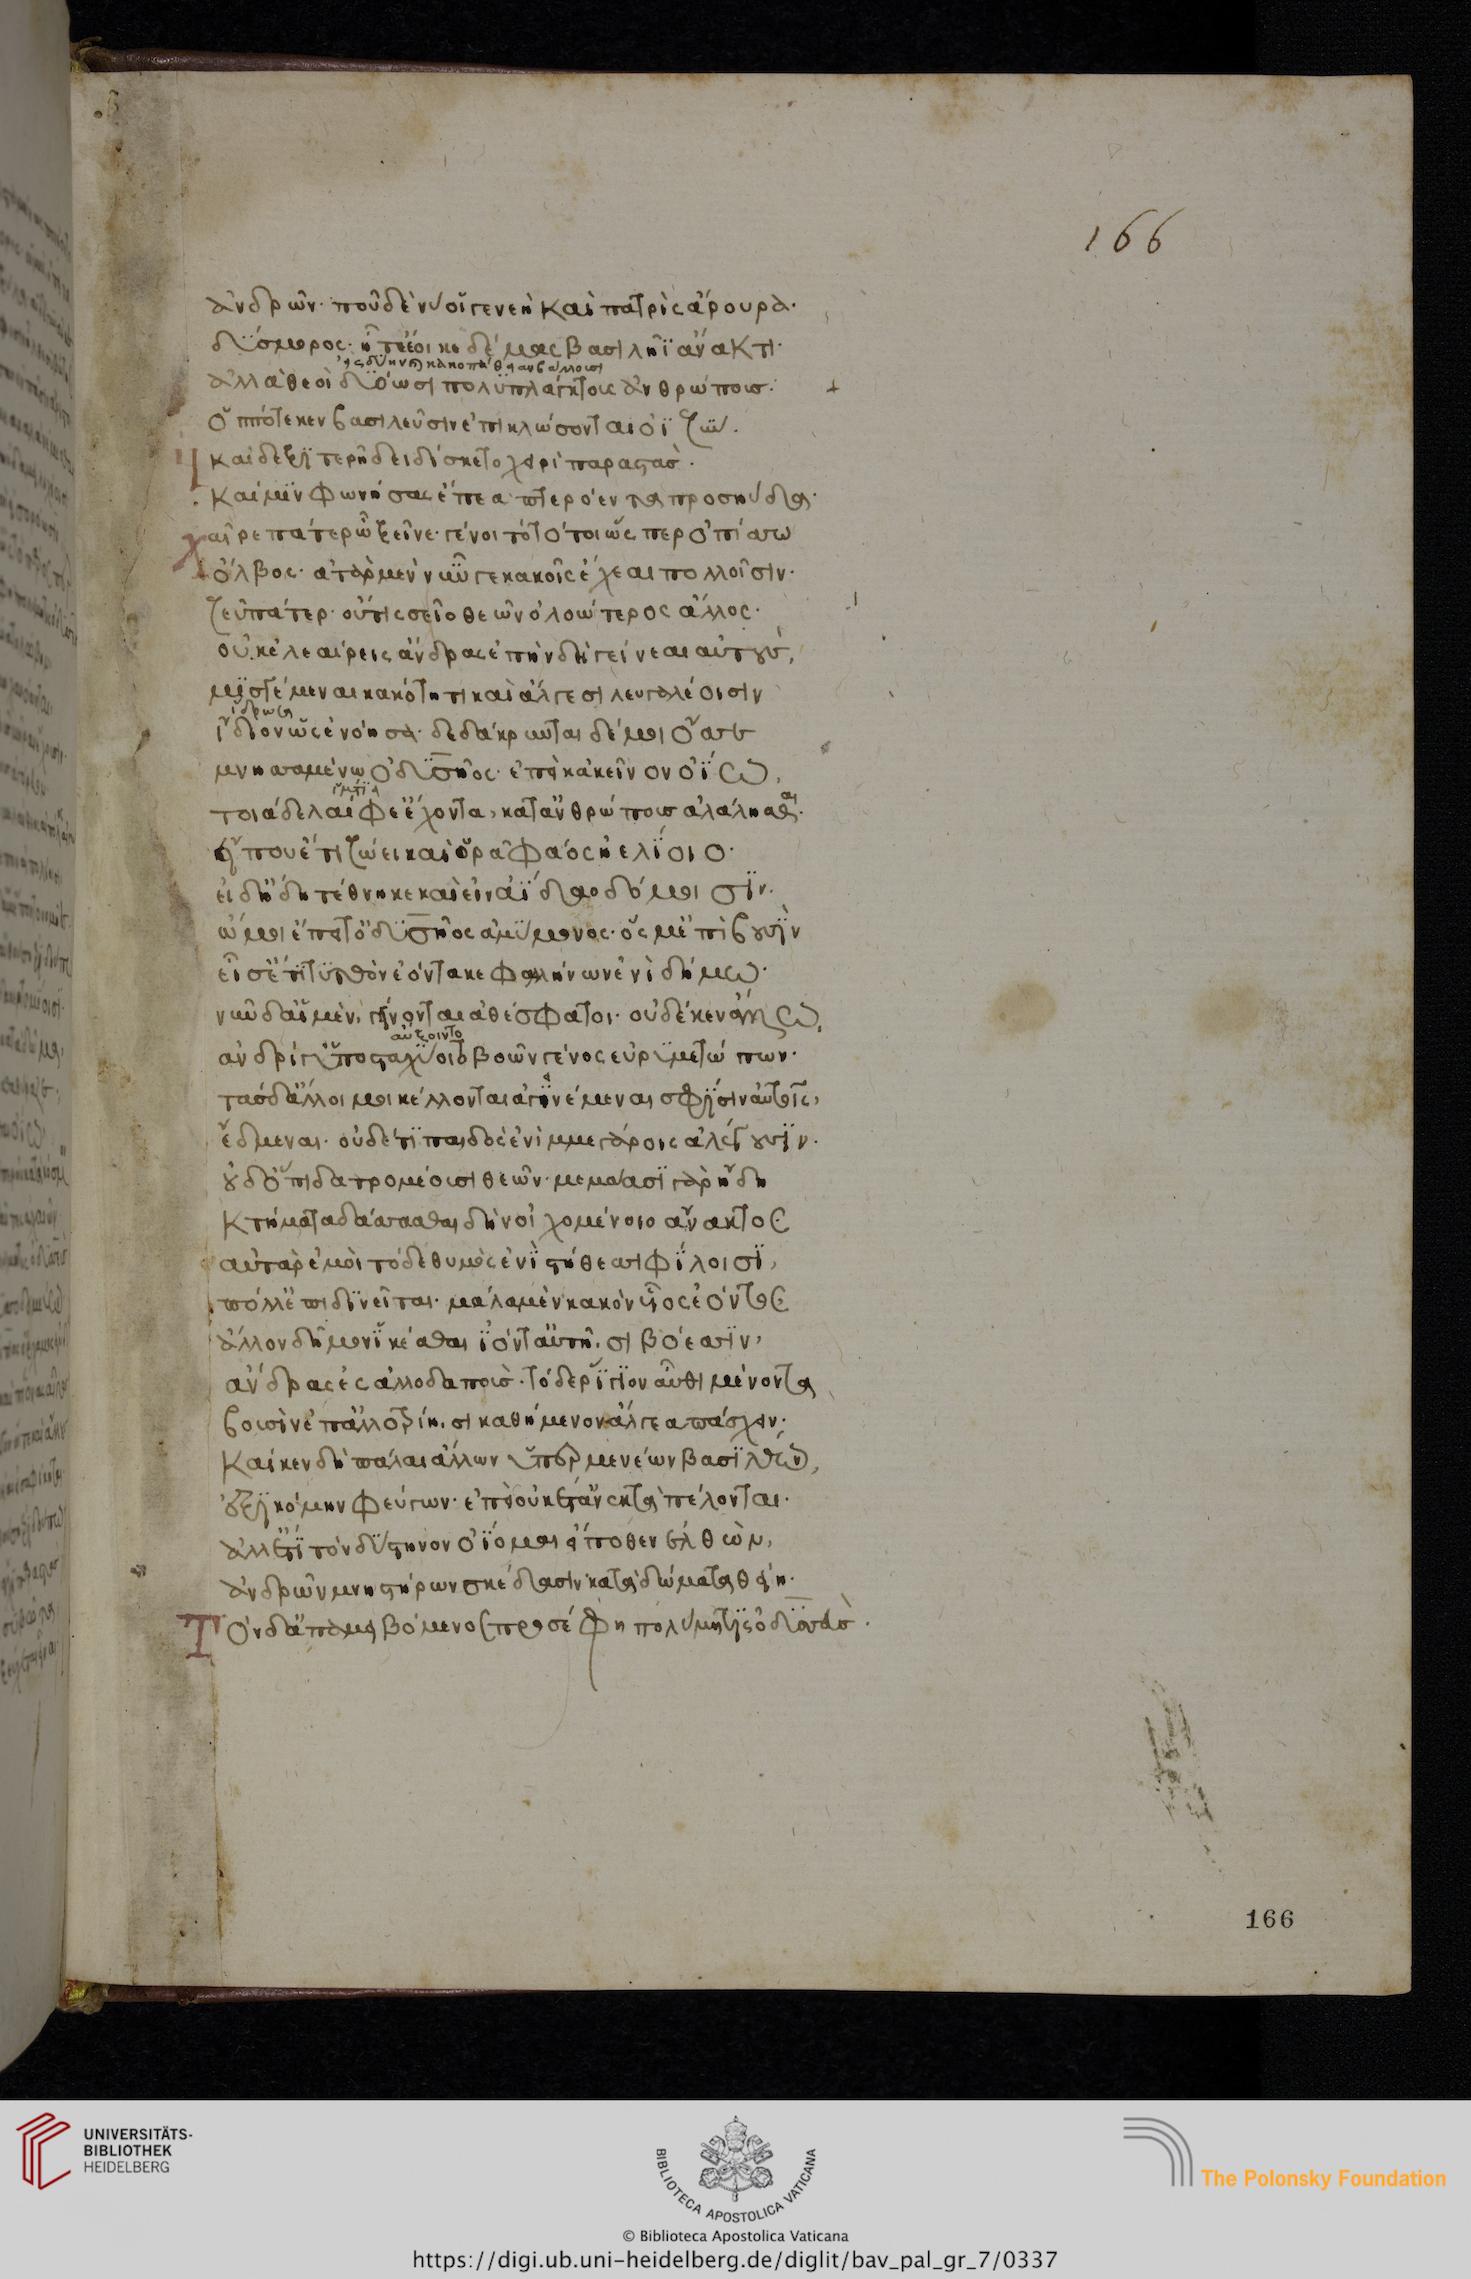 166
ἀνδρῶν· ποῦ δέ νύ οἱ γενεὴ καὶ πατρὶς ἄρουρα·
δύσμορος· ἦ τε ἔοικε δέμας βασιλῆϊ ἄνακτι·
ἀλλὰ θεοὶ δυόωσι πολυπλάγκτους ἀνθρώπους·
ὁππότε κεν βασιλεῦσιν ἐπικλώσονται ὀϊζύν.
Ἦ καὶ δεξιτερῇ δειδίσκετο χειρὶ παραστάς·
καί μιν φωνήσας ἔπεα πτερόεντα προσηύδα·
χαῖρε πάτερ ὦ ξεῖνε· γένοιτό τοι ὥς περ ὀπίσσω
ὄλβος· ἀτὰρ μὲν νῦν γε κακοῖς ἔχεαι πολλοῖσιν·
ζεῦ πάτερ· οὔτις σεῖο θεῶν ὀλοώτερος ἄλλος·
οὐκ ἐλεαίρεις ἄνδρας ἐπὴν δὴ γείνεαι αὐτός,
μισγέμεναι κακότητι καὶ ἄλγεσι λευγαλέοισιν
ἴδιον ὡς ἐνόησα· δεδάκρυνται δέ μοι ὄσσε
μνησαμένω ὀδυσῆος· ἐπεὶ κἀκεῖνον ὀΐω,
τοιάδε λαίφε' ἔχοντα, κατ' ἀνθρώπους ἀλάλησθαι·
εἴ που ἔτι ζώει καὶ ὁρᾷ φάος ἠελίοιο·
εἰ δ' ἤδη τέθνηκε καὶ εἰν ἀΐδαο δόμοισιν·
ὤ μοι ἔπειτ' ὀδυσῆος ἀμύμονος· ὅς μ' ἐπὶ βουσὶν
εἷσ' ἔτι τυτθὸν ἐόντα κεφαλλήνων ἐνὶ δήμω·
νῦν δ' αἱ μὲν γίνονται ἀθέσφατοι· οὐδέ κεν ἄλλως
αὔξοιντο
ἀνδρί γ' ὑποσταχύοιτο βοῶν γένος εὐρυμετώπων·
τὰς δ' ἄλλοι με κέλονται ἀγινέμεναι σφίσιν αὐτοῖς,
ἔδμεναι· οὐδέ τι παιδὸς ἐνὶ μεγάροις ἀλέγουσιν·
οὐδ' ὄπιδα τρομέουσι θεῶν· μεμάασι γὰρ ἤδη
κτήματα δάσσασθαι δὴν οἰχομένοιο ἄνακτος
αὐτὰρ ἐμοὶ τόδε θυμὸς ἐνὶ στήθεσσι φίλοισι,
πόλλ' ἐπιδινεῖται· μάλα μὲν κακὸν υἷος ἐόντος
ἄλλον δῆμον ἱκέσθαι ἰόντ' αὐτῇσι βόεσσιν,
ἄνδρας ἐς ἀλλοδαπούς· τὸ δὲ ῥίγιον αὖθι μένοντα
βουσὶν ἐπ' ἀλλοτρίῃσι καθήμενον ἄλγεα πάσχειν·
καί κεν δὴ πάλαι ἄλλων ὑπερμενέων βασιλήων,
ἐξικόμην φεύγων· ἐπεὶ οὐκέτ' ἀνσχετὰ πέλονται·
ἀλλ' ἔτι τὸν δύστηνον ὀΐομαι εἴ ποθεν ἐλθών,
ἀνδρῶν μνηστήρων σκέδασιν κατὰ δώματα θείη·
Τὸν δ' ἀπαμειβόμενος προσέφη πολύμητις ὀδυσσεύς·
166
UNIVERSITÄTS-
BIBLIOTHEK
HEIDELBERG
BIBLIOTECA APOSTOLICA VATICANA
The Polonsky Foundation
© Biblioteca Apostolica Vaticana
https://digi.ub.uni-heidelberg.de/diglit/bav_pal_gr_7/0337